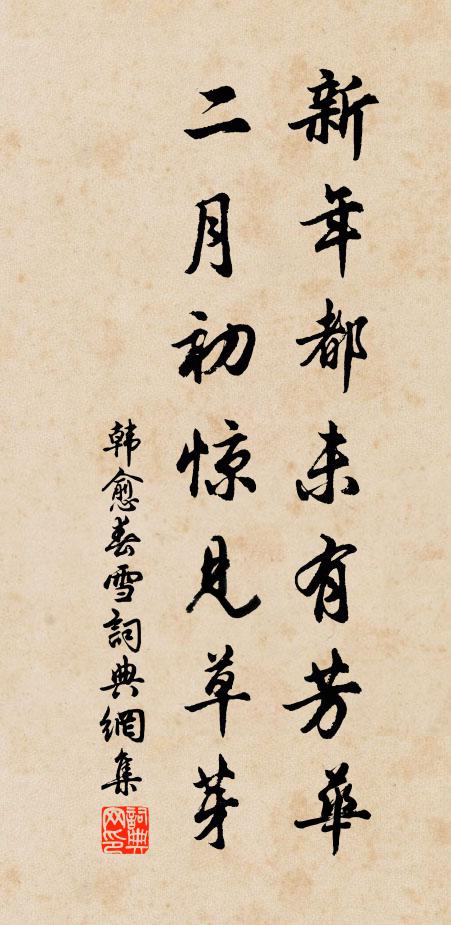 新年都未有芳華
二月初惊見草芽
韓愈春雪詞典網集
詞典網印